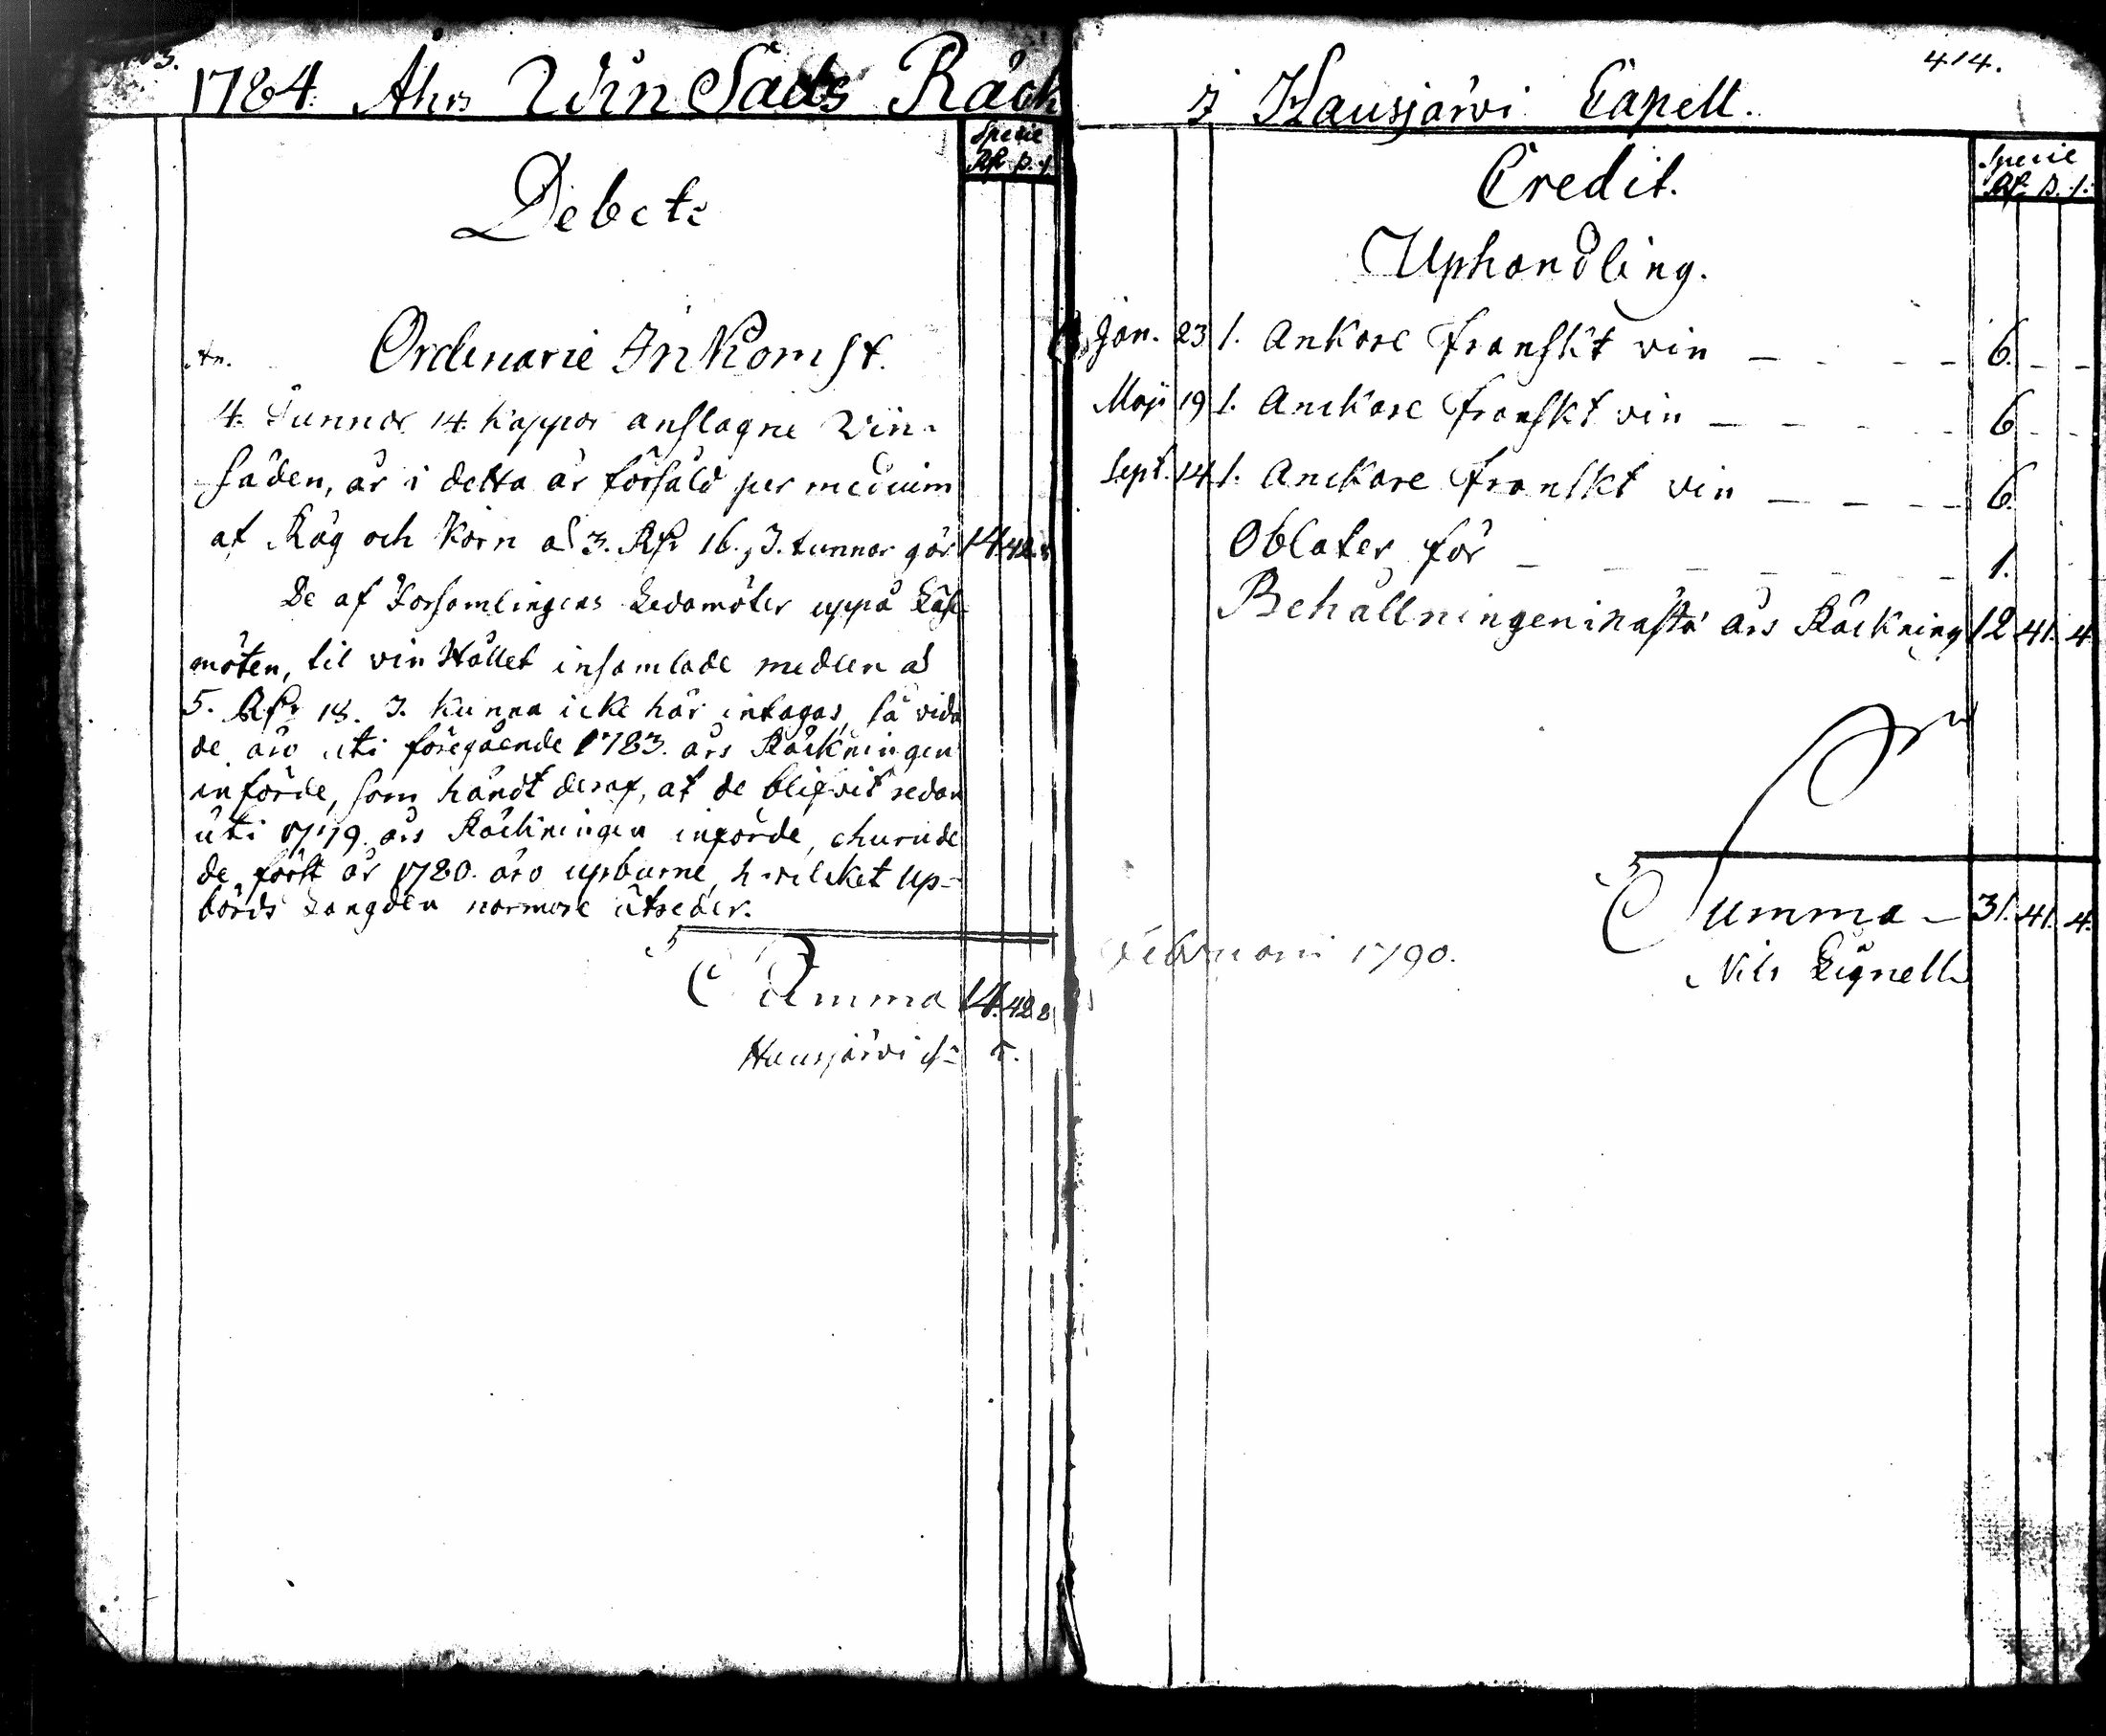 1784. Åhrs Win Sads Räck
Specie
Rdr s. r.
Debet:
Ordinarie Inkomst.
4. Tunnor 14. Kappor anslagne Win-
säden, är i detta år försåld per medium
af Råg och Korn a 3. Rdr 16. s. tunnan gör 14. 42. 8
De af Församlingens Ledamöter uppå Läse
möten, til vin Hållet insamlade medlen as
5. Rdr 18. s. kunna icke här intagas, så vida
de äro uti föregående 1783. års Räckningen
införde, som händt deraf, at de blifvit redan
uti 1779. års Räckningen införde, ehuru de
de först år 1780. äro upburne, hvilcket up-
börds Längden närmare utreder.
Summa 14. 42. 8
Hausjärvi
414.
i Hausjärvi Capell.
Specie
Rdr s. r.
Credit.
Uphandling.
Jan. 23 1. Ankare franskt vin - - - - 6. - -
Maji 19 1. Anckare franskt vin - - - - 6 - -
Sept. 14 1. Anckare franskt vin - - - - 6.
Oblater för - - - - - - 1.
Behållningen i nästa års Räckning 12 41. 4.
Summa - 31. 41. 4.
Februari 1790.
Nils Lignell